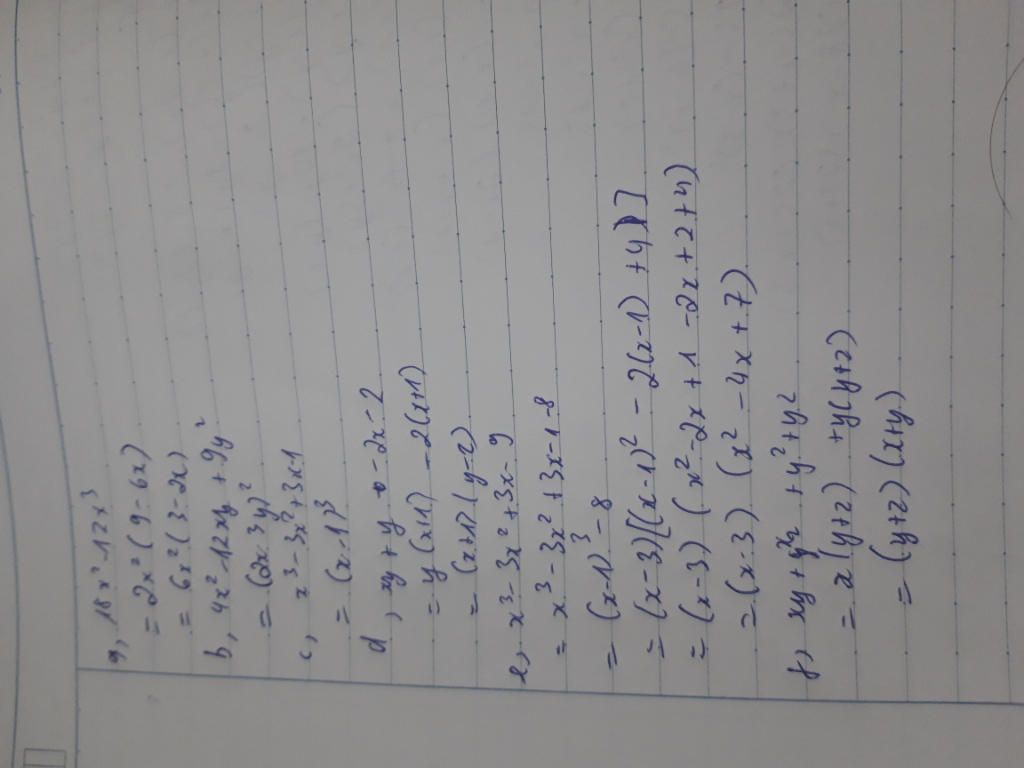 a, 18x² - 12x³
= 2x² (9 - 6x)
= 6x² (3 - 2x)
b, 4x² - 12xy + 9y²
= (2x - 3y)²
c, x³ - 3x² + 3x - 1
= (x - 1)³
d, xy + y - 2x - 2
= y (x+1) - 2(x+1)
= (x+1) (y-2)
e, x³ - 3x² + 3x - 9
= x³ - 3x² + 3x - 1 - 8
= (x-1)³ - 8
= (x-3)[(x-1)² - 2(x-1) + 4)]
= (x-3) (x² - 2x + 1 - 2x + 2 + 4)
= (x-3) (x² - 4x + 7)
f, xy + + y² + y2
= x (y+z) + y(y+z)
= (y+z) (x+y)